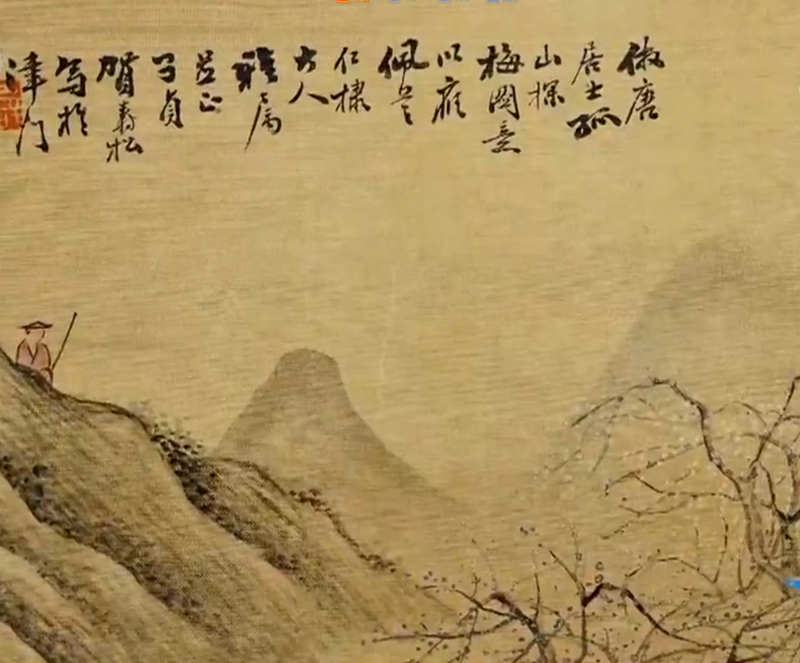 倣唐
居士孤
山探
梅圖意
以應
佩
仁棣
大人
雅屬
並正
子貞
賀壽松
写於
津门